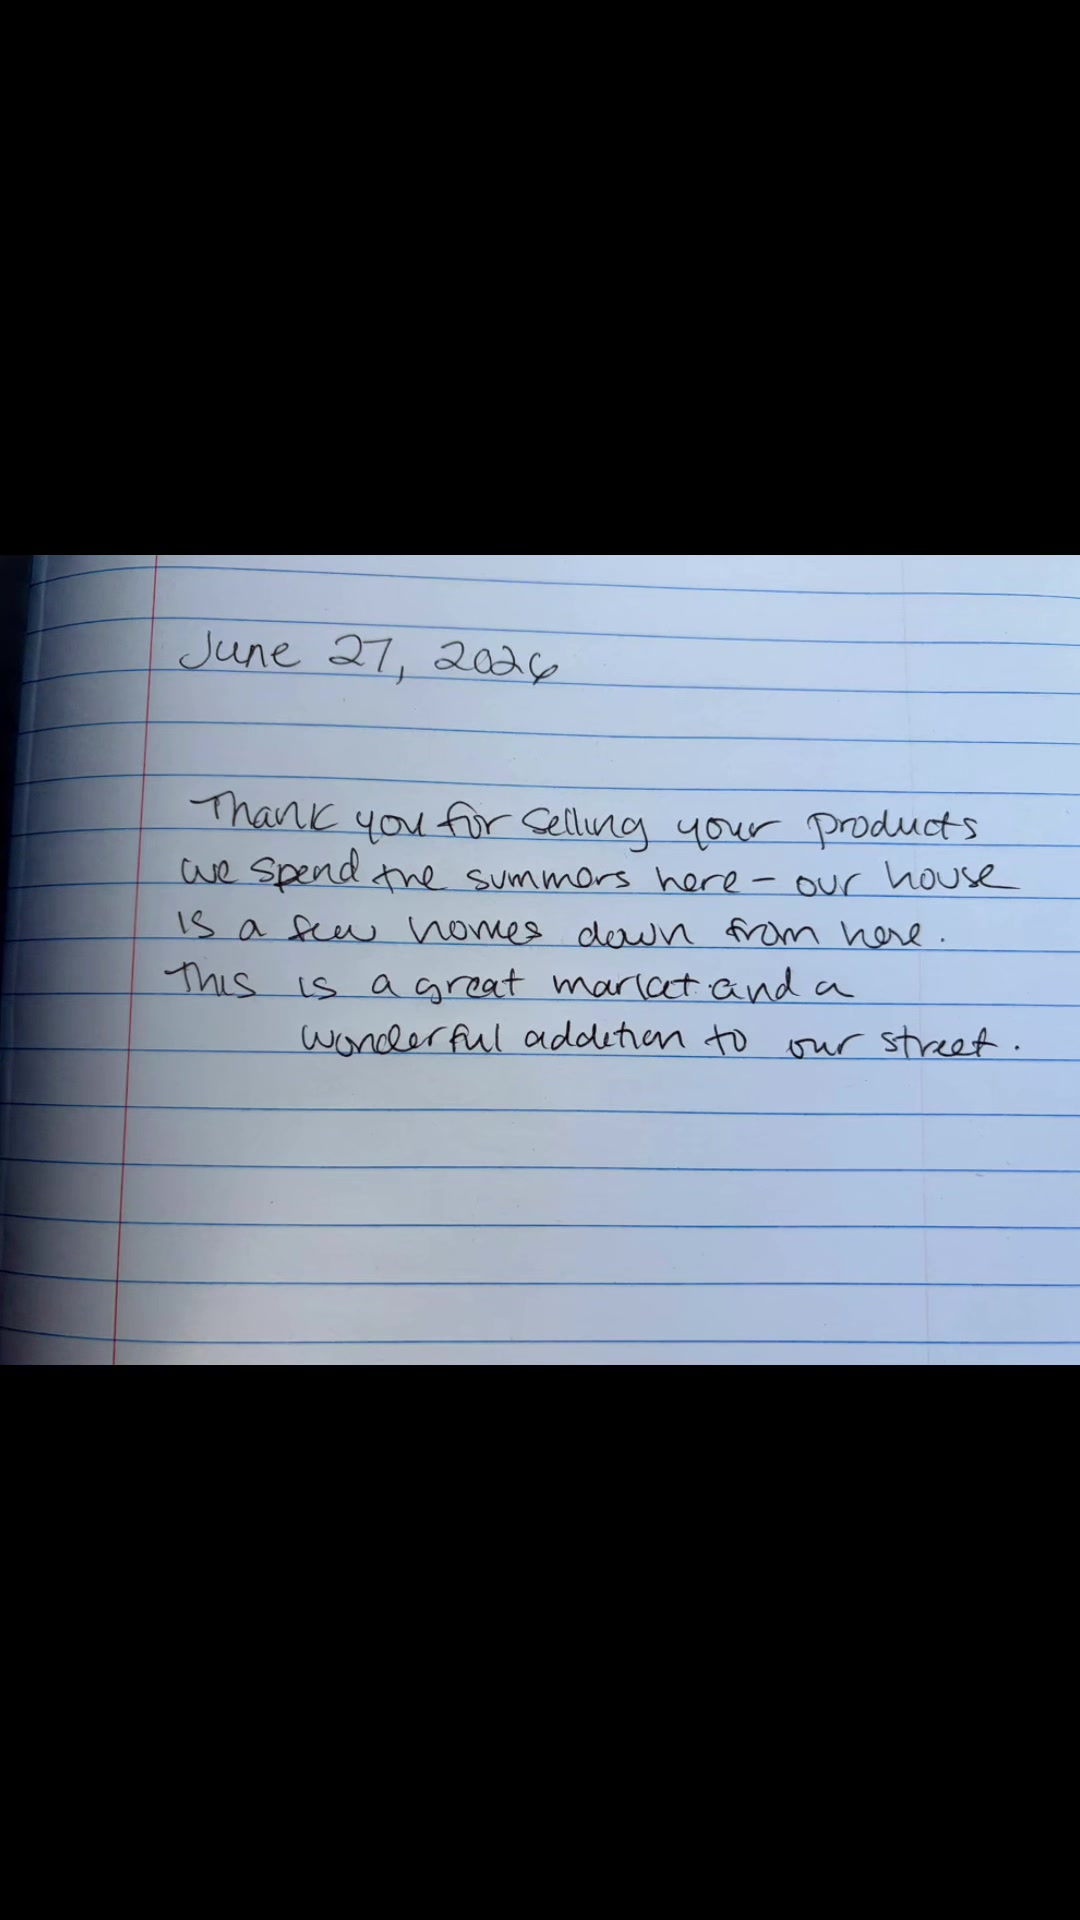 June 27, 2026
Thank you for selling your products
we spend the summers here - our house
is a few homes down from here.
This is a great market and a
wonderful addition to our street.